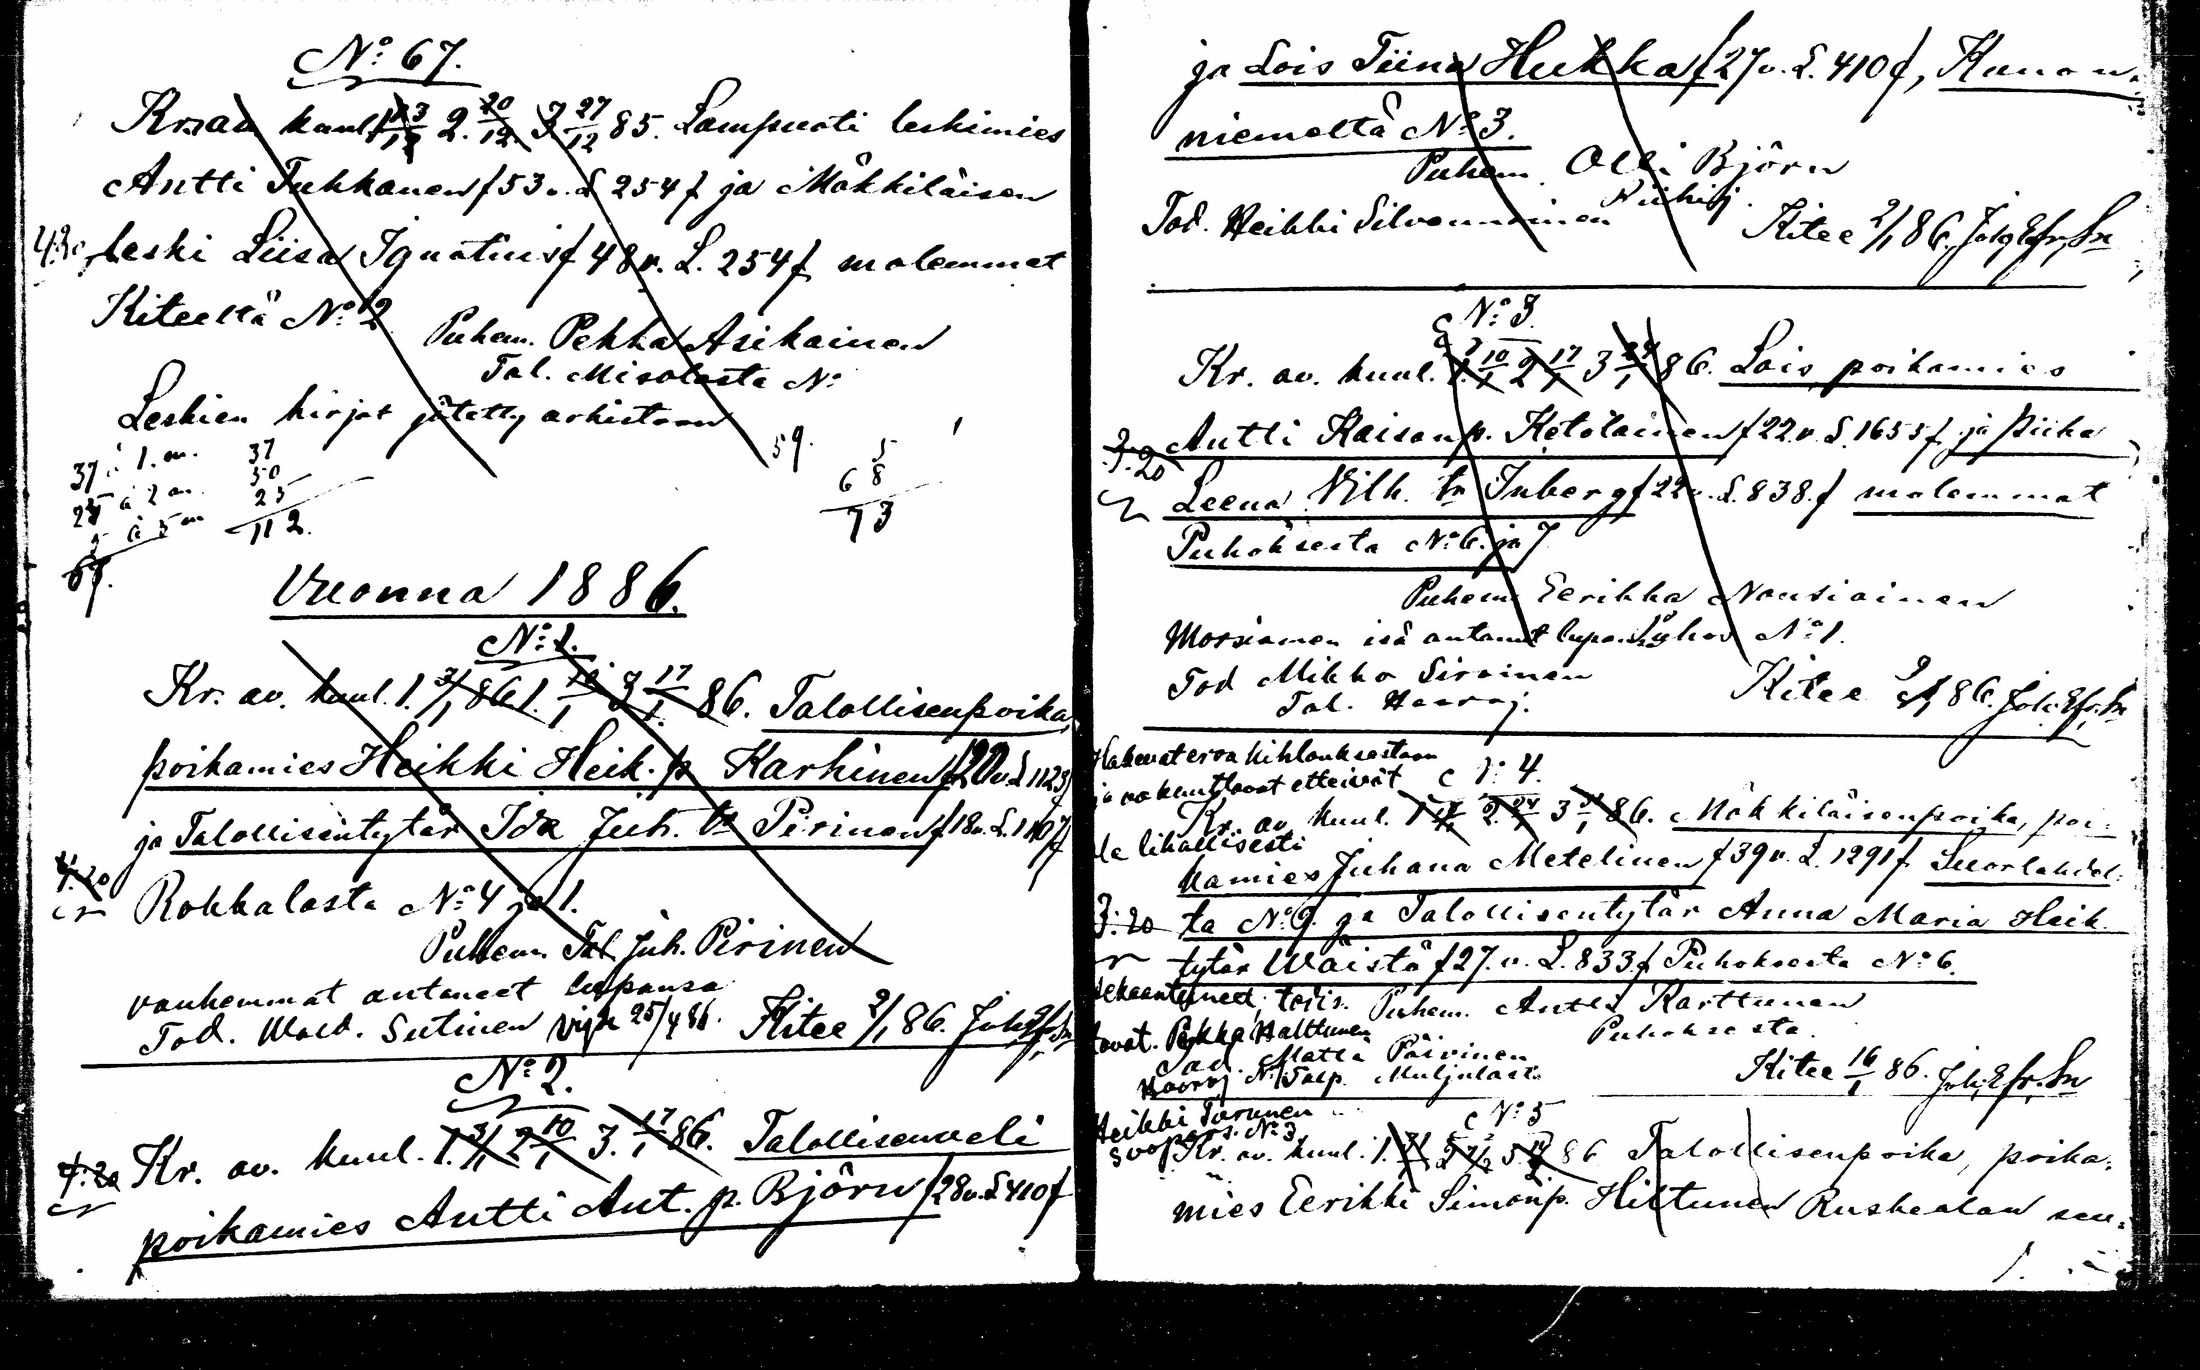 No: 67.
Krsau kuul. 1 13/12 2. 20/12. 3 27/12 85. Lampuoti leskimies
Antti Tuhkanen f 53 v. L 254 f ja Mökkiläisen
4:30
leski Liisa Ignatius f 48 v. L. 254 f molemmat
Kiteeltä No: 2
Puhem. Pekka Asikainen
Tal. Misolasta No:
Leskien kirjat jätetty arkistoon
37 à 1. m. 37
25 à 2 m. 50
5 à 5 m 25
67. 112.
59. 5
68
73
Vuonna 1886.
No: 1.
Kr. av. kuul. 1. 3/1 86. 1. 10/1 3 17/1. 86. Talollisenpoika
poikamies Heikki Heik. p. Karhinen f 20 v. L 1123 f
ja Talollisentytär Ida Juh. tr Pirinen f 18 v. L. 1107 f
4.20
Rokkalasta No: 4 ja 1.
Puhem. Tal. Juh. Pirinen
vanhemmat antaneet lupansa
Tod. Wold. Sutinen 25/4 86. Kitee 2/1 86. Joh. Efr. Sn
No: 2.
4:20 Kr. av. kuul. 1. 3/1 2 10/1 3. 17/1 86. Talollisenveli
poikamies Antti Ant. p. Björn f 28 v. L 410 f
ja Lois Tiina Hukka f 27 v. L. 410 f, Kunon-
niemeltä No: 3.
Puhem. Olli Björn
Tod. Heikki Silvennoinen Kitee 2/1 86. Joh. Efr. Sn
No: 3.
Kr. av. kuul. 1. 10/1 2 17/1 3 24/1 86. Lois poikamies
Antti Kaisan p. Ketolainen f 22 v. L. 1655 f ja piika
3:20
Leena Vilh. tr Inberg f 22 v. L. 838. f molemmat
Puhoksesta No: 6. ja 7
Puhem. Eerikka Nousiainen
Morsiamen isä antanut lupansa No: 1.
Tod Mikko Sirainen
Tal. Haaraj. Kitee 9/1 86. Joh. Efr. Sn
Hakevat eroa kihlauksestaan
No: 4.
ja vakuuttavat etteivät
Kr. av. kuul. 1 17/1 2. 24/1 3 31/1 86. Mökkiläisenpoika, poi-
le lihallisesti
kamies Juhana Metelinen f 39 v. L. 1291 f Suorlahdel-
3:20 ta No: 9. ja Talollisentytär Anna Maria Heik.
tytär Wäistö f 27. v. L. 833 f Puhoksesta No: 6.
sekaantuneet; todis. Puhem. Antti Karttunen
tavat. Pekka Halttunen Puhoksesta.
Tod. Matti Päivinen
Haaraj. No: 1 Talp. Muljulast. Kitee 16/1 86. Joh. Efr. Sn
Heikki Turunen
No: 5
No: 3
Kr. av. kuul. 1. 31/1 2 7/2 3. 14/2 86 Talollisenpoika, poika-
mies Eerikki Simonp. Hiltunen Ruskealan seu-